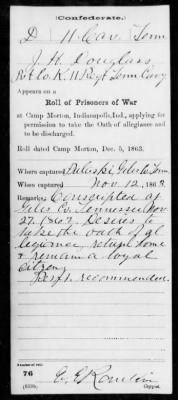 (Confederate.)
D 11 Cav. Tenn
J. H. Douglass
Pvt Co. K. 11 Regt Tenn Cavy
Appears on a
Roll of Prisoners of War
at Camp Morton, Indianapolis, Ind., applying for
permission to take the Oath of allegiance and
to be discharged.
Roll dated Camp Morton, Dec. 5, 1863.
Where captured Pulaski Giles Co Tenn.
When captured Nov 12, 1863.
Remarks: Conscripted at
Giles Co. Tennessee Nov
27. 1862. Desires to
take the oath of al
legiance, return home
& remain a loyal
citizen.
recommended.
Number of roll:
76
Copyist.